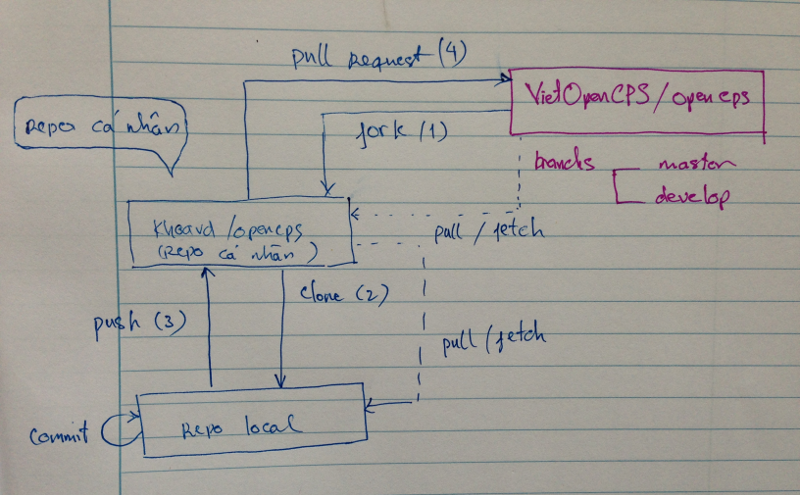 pull request (4)
VietOpenCPS / opencps
Repo cá nhân
fork (1)
branchs
master
develop
khoavd / opencps
(Repo cá nhân)
pull / fetch
clone (2)
push (3)
pull / fetch
commit
Repo local